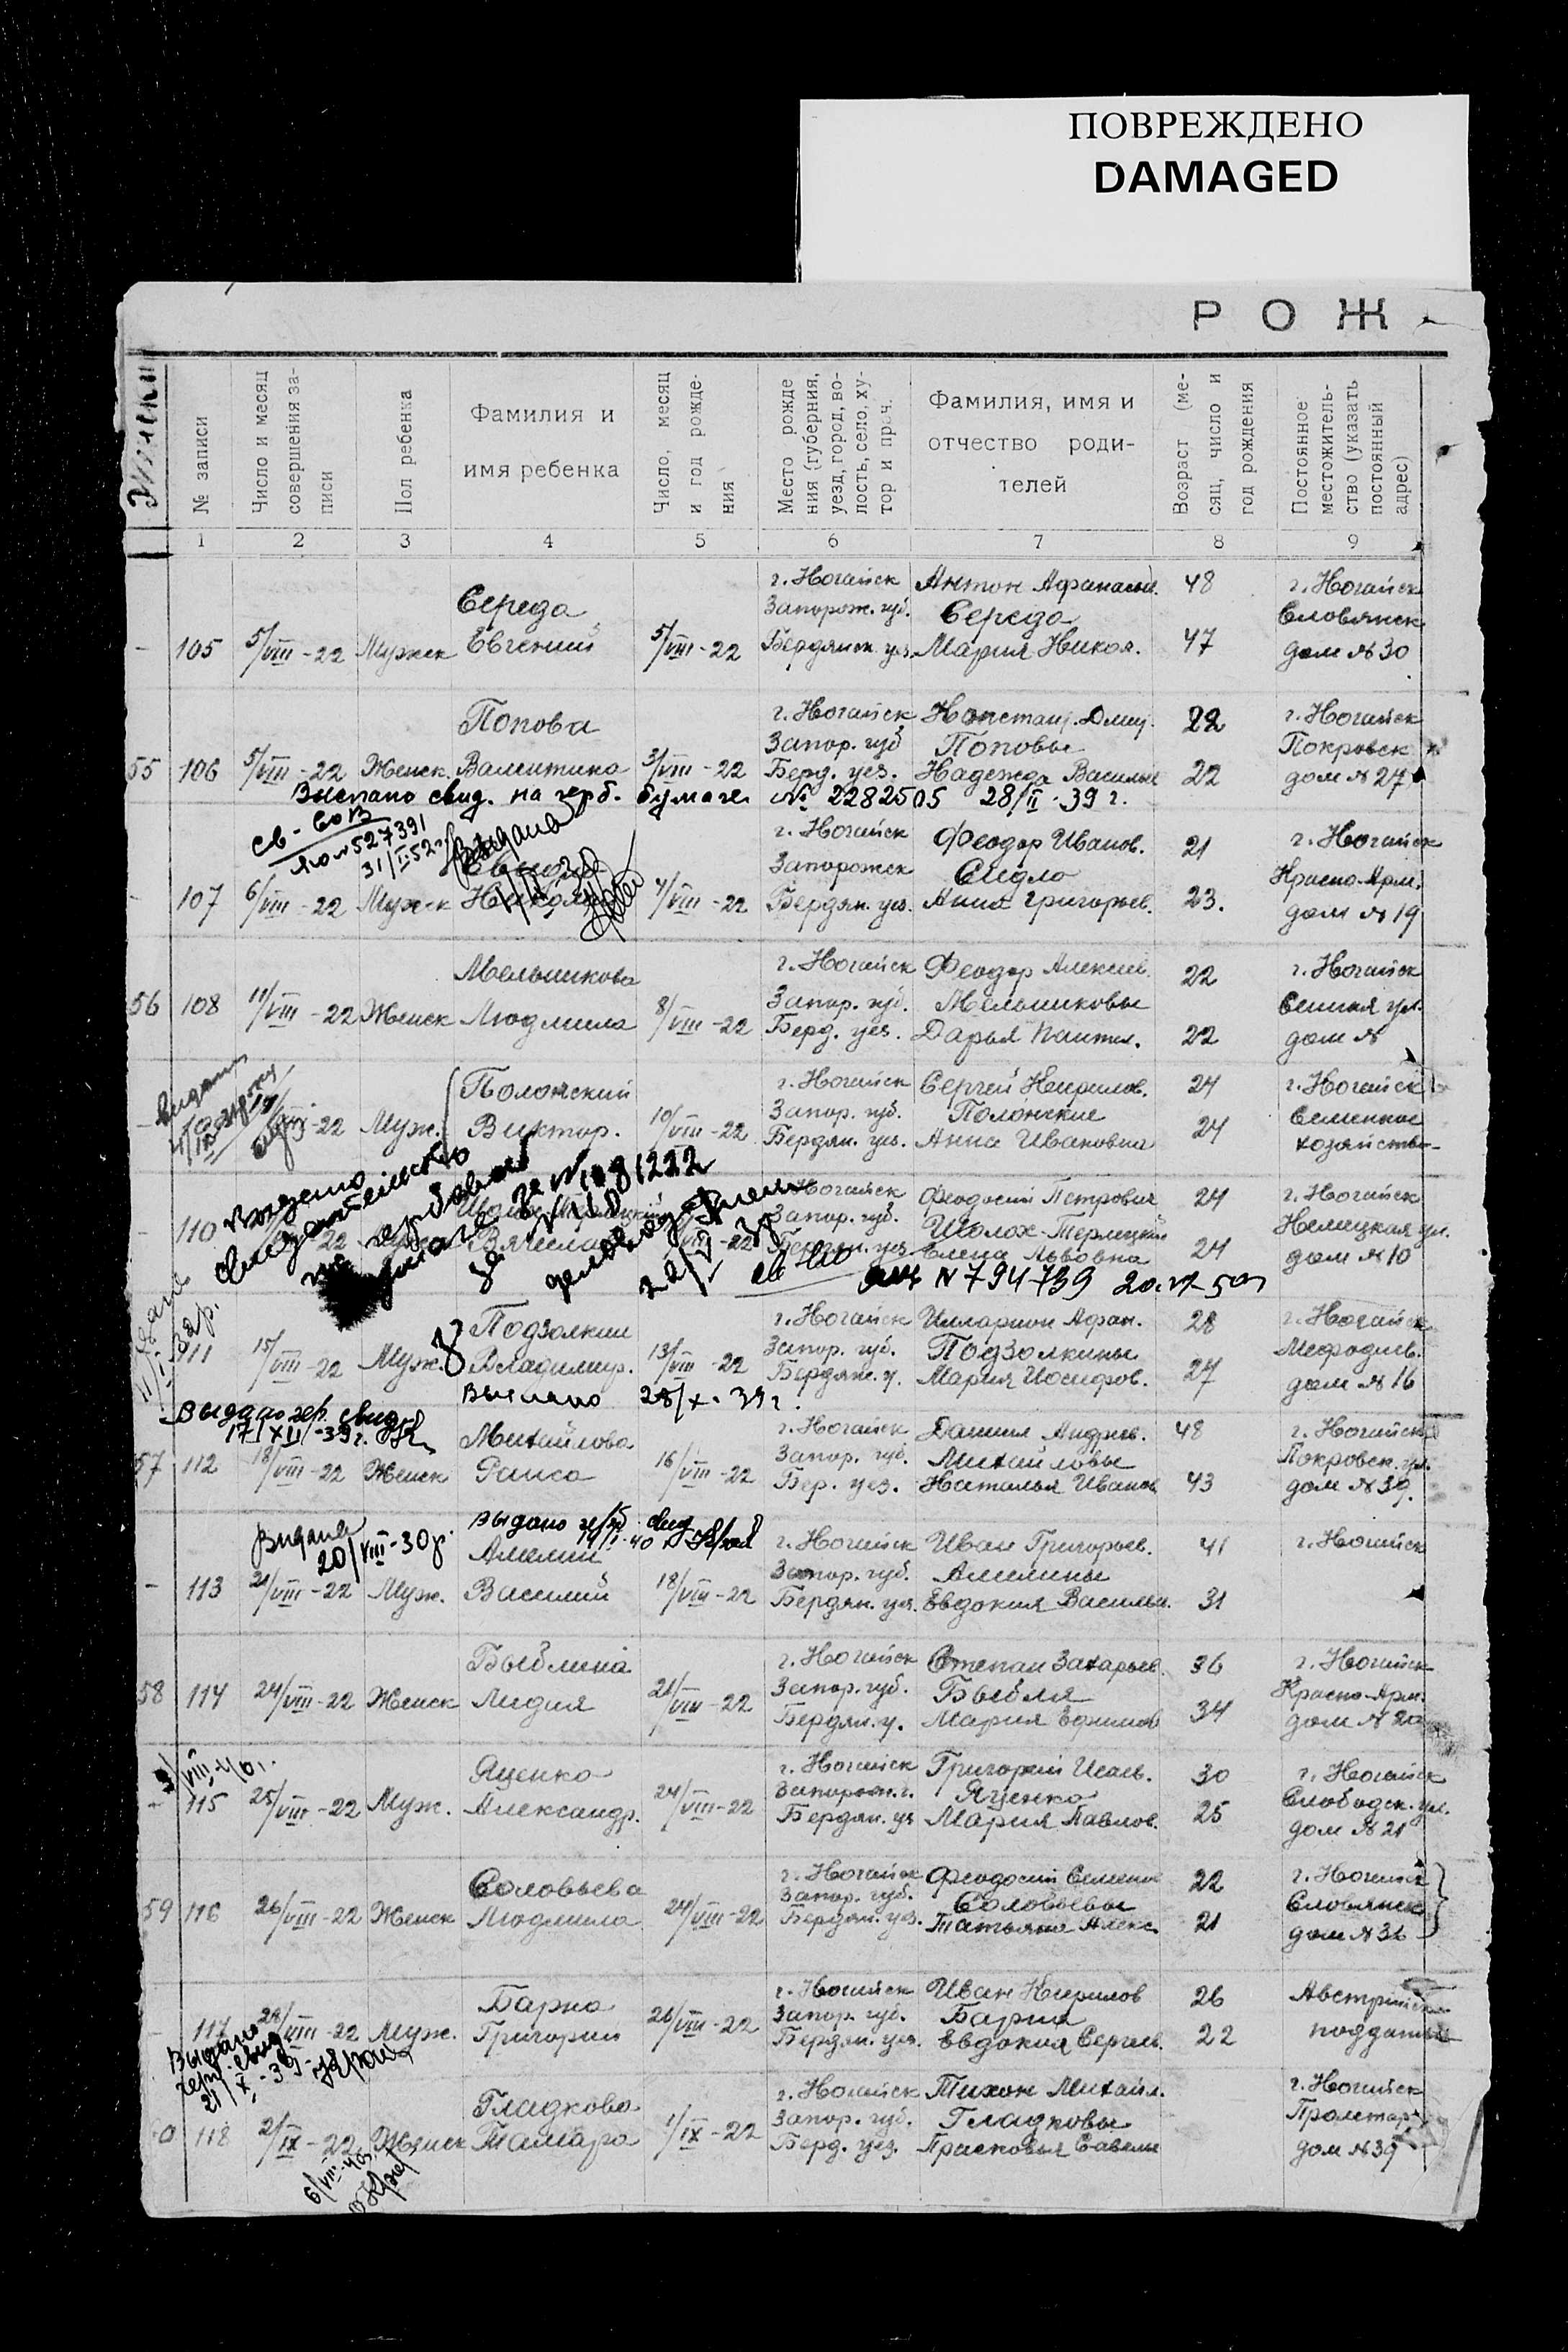 ПОВРЕЖДЕНО
DAMAGED
Р О Ж
№ записи
Число и месяц
совершения за-
писи
Пол ребенка
Фамилия и
имя ребенка
Число, месяц
и год рожде-
ния
Место рожде
ния (губерния,
уезд, город, во-
лость, село, ху-
тор и проч.
Фамилия, имя и
отчество роди-
телей
Возраст (ме-
сяц, число и
год рождения
Постоянное
местожитель-
ство (указать
постоянный
адрес)
1 2 3 4 5 6 7 8 9
г. Ногайск Антон Афанасьи. 48 г. Ногайск
Середа Запорож. губ. Середа Словянск
- 105 5/VIII-22 Мужск Евгений 5/VIII-22 Бердянск. уез. Мария Никол. 47 дом № 30
Попова г. Ногайск Констант. Дмит. 22 г. Ногайск
Запор. губ Поповы Покровск
55 106 5/VIII-22 Женск. Валентина 3/VIII-22 Берд. уез. Надежда Василье 22 дом № 27
Выслано свид. на герб. бумаге № 2282505 28/II-39 г.
св-во
№ 527391
31/I-52 г.
Выдана
г. Ногайск Феодор Иванов. 21 г. Ногайск
Запорожск Сидло Красно-Арм.
- 107 6/VIII-22 Мужск Николай 4/VIII-22 Бердян. уез. Анна Григорьев. 23. дом № 19
Мельникова г. Ногайск Феодор Алексеев. 22 г. Ногайск
Запор. губ. Мельниковы Сенная ул.
56 108 11/VIII-22 Женск Людмила 8/VIII-22 Берд. уез. Дарья Пантел. 22 дом №
Видана
Полонский г. Ногайск Сергей Кирилов. 24 г. Ногайск
Запор. губ. Полонские Семенное
- 22 Муж. Виктор. 10/VIII-22 Бердян. уез. Анна Ивановна 24 хозяйство
выдано
свидетельство
на гербовой
бумаге за № 1081222
за
делопроизводителя
Ногайск Феодосий Петрович 24 г. Ногайск
Запор. губ. Шолох-Терлецкий Немецкая ул.
- 110 22 Вячеслав 22 Бердян. уез. Елена Львовна 24 дом № 10
№ 794739
Подзолкин г. Ногайск Илларион Афан. 28 г. Ногайск
Запор. губ. Подзолкины Мефодиев.
111 15/VIII-22 Муж. Владимир. 13/VIII-22 Бердянс. у. Мария Иосифов. 27 дом № 16
Выслано 28/X-39 г.
Выдано гер. свид
17/XII-39 г.
Михайлова г. Ногайск Даниил Андреев. 48 г. Ногайск
Запор. губ. Михайловы Покровск. ул.
57 112 18/VIII-22 Женск Раиса 16/VIII-22 Бер. уез. Наталья Иванов 43 дом № 39.
Видана
20/VIII-30 р.
Выдано герб. свид
Амелин г. Ногайск Иван Григорьев. 41 г. Ногайск
Запор. губ. Амелины
- 113 21/VIII-22 Муж. Василий 18/VIII-22 Бердян. уез. Евдокия Васильи. 31
Быблина г. Ногайск Степан Захарьев. 36 г. Ногайск
Запор. губ. Быбля Красно-Арм.
58 114 24/VIII-22 Женск Лидия 21/VIII-22 Бердян. у. Мария Ефимов 34 дом № 20
VIII-40 г.
Яценко г. Ногайск Григорий Исаев. 30 г. Ногайск
Запорожск. г. Яценко Слободск. ул.
- 115 25/VIII-22 Муж. Александр. 24/VIII-22 Бердян. уз Мария Павлов. 25 дом № 21
Соловьева г. Ногайск Феодосий Семенов 22 г. Ногайск
Запор. губ. Соловьевы Словянск
59 116 26/VIII-22 Женск Людмила 24/VIII-22 Бердян. уез. Татьяна Алекс. 21 дом № 36
Барна г. Ногайск Иван Кирилов 26 Австрийск
Запор. губ. Барна подданый
- 117 28/VIII-22 Муж. Григорий 26/VIII-22 Бердян. уез. Евдокия Сергеев. 22
Выдано
герб. свид
21/X-39
Гладкова г. Ногайск Тихон Михайл. г. Ногайск
Запор. губ. Гладковы Пролетар
0 118 2/IX-22 Женск Тамара 1/IX-22 Берд. уез. Прасковья Савелье дом № 39
6/VIII-40 г.